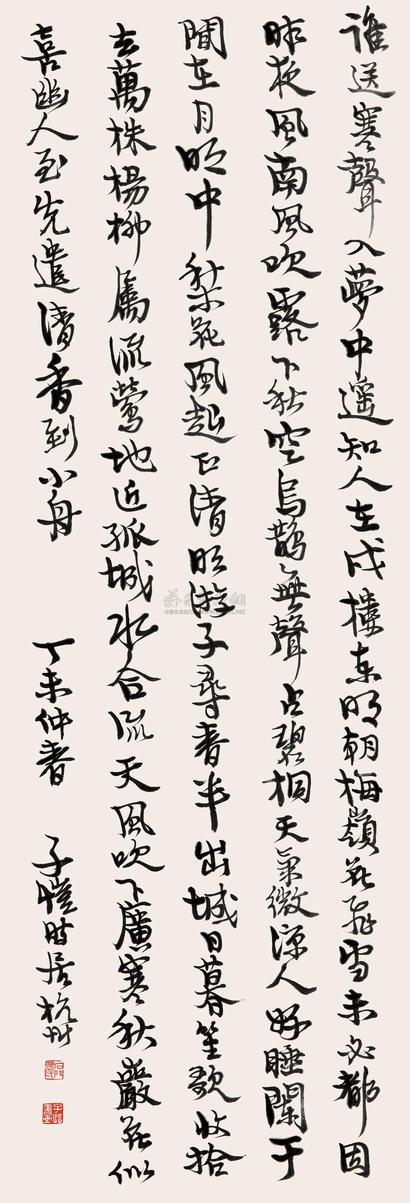 誰送寒聲入夢中遥知人在戍樓東明朝梅嶺花飛雪未必都因
昨夜風南風吹露下秋空烏鵲無聲占碧桐天氣微涼人好睡闌干
閒在月明中梨花風起正清明游子尋春半出城日暮笙歌收拾
去萬株楊柳屬流鶯地近孤城水合流天風吹下廣寒秋巖花似
喜幽人至先遣清香到小舟 丁未仲春 子愷時居杭州